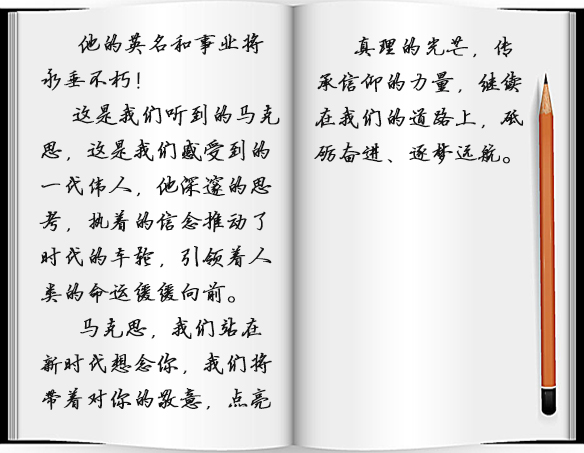 他的英名和事业将
永垂不朽！
这是我们听到的马克
思，这是我们感受到的
一代伟人，他深邃的思
考，执着的信念推动了
时代的车轮，引领着人
类的命运缓缓向前。
马克思，我们站在
新时代想念你，我们将
带着对你的敬意，点亮
真理的光芒，传
承信仰的力量，继续
在我们的道路上，砥
砺奋进、逐梦远航。